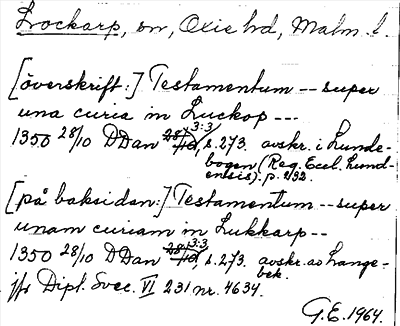 Lockarp, sn, Oxie hd, Malm. l.
[överskrift:] Testamentum -- super
una curia in Luckop ---
1350 28/10 DDan 3:3, s. 273. avskr. i Lunde-
bogen (Reg. Eccl. Lund-
ensis). p. 232.
[på baksidan:] Testamentum -- super
unam curiam in Lukkarp --
1350 28/10 DDan 3:3, s. 273. avskr. av Lange-
bek.
jfr Dipl. Svec. VI 231 nr. 4634.
G.E. 1964.